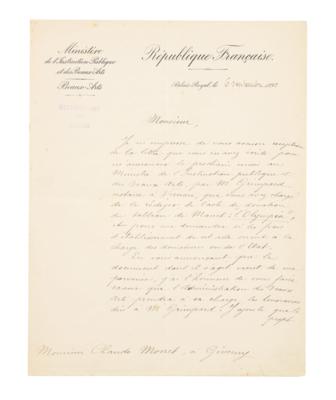 Ministère
de l'Instruction Publique
et des Beaux-Arts
Beaux-Arts
République Française.
Palais-Royal, le
Monsieur,
Je m'empresse de vous accuser réception
de la lettre que vous m'avez écrite pour
m'annoncer le prochain envoi au
Ministre de l'Instruction publique et
des Beaux Arts, par M. Grimpard,
notaire à Vernon, que vous avez chargé
de le rédiger de l'acte de donation
du tableau de Manet: "l'Olympia",
et pour me demander si les frais
d'établissement de cet acte seront à la
charge des donateurs ou de l'Etat.
En vous annonçant que le
document dont il s'agit vient de me
parvenir, j'ai l'honneur de vous faire
connaître que l'Administration des Beaux
Arts prendra à sa charge les honoraires
dûs à M. Grimpard. J'ajoute que le
Monsieur Claude Monet, à Giverny